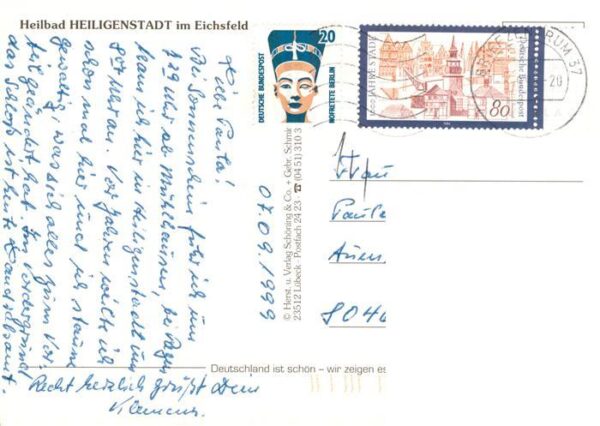 Heilbad HEILIGENSTADT im Eichsfeld
Liebe Paula!
Bei Sonnenschein fuhr ich um
9 Uhr ab Mühlhausen, bei Regen
kam ich hier in Heiligenstadt um
an. Vor Jahren weilte ich
schon mal hier und ich staune
gewaltig, was sich alles zum Vor-
teil geändert hat. Im Vordergrund
das Schloß ist heute Landratsamt.
Recht herzlich grüßt Dein
Klemens.
07.09.1999
© Herst. u. Verlag Schöning & Co. + Gebr. Schmidt
23512 Lübeck · Postfach 24 23 · ☎ (04 51) 310 3
20
DEUTSCHE BUNDESPOST
NOFRETETE BERLIN
JAHRE STADT
Deutsche Bundespost
80
BRIEFZENTRUM 37
20
Frau
Paula
Auen
8040
Deutschland ist schön – wir zeigen es